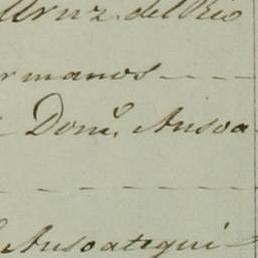 Cruz del Rio
ermanos - - -
Dom.º Ansoa
Ansoategui